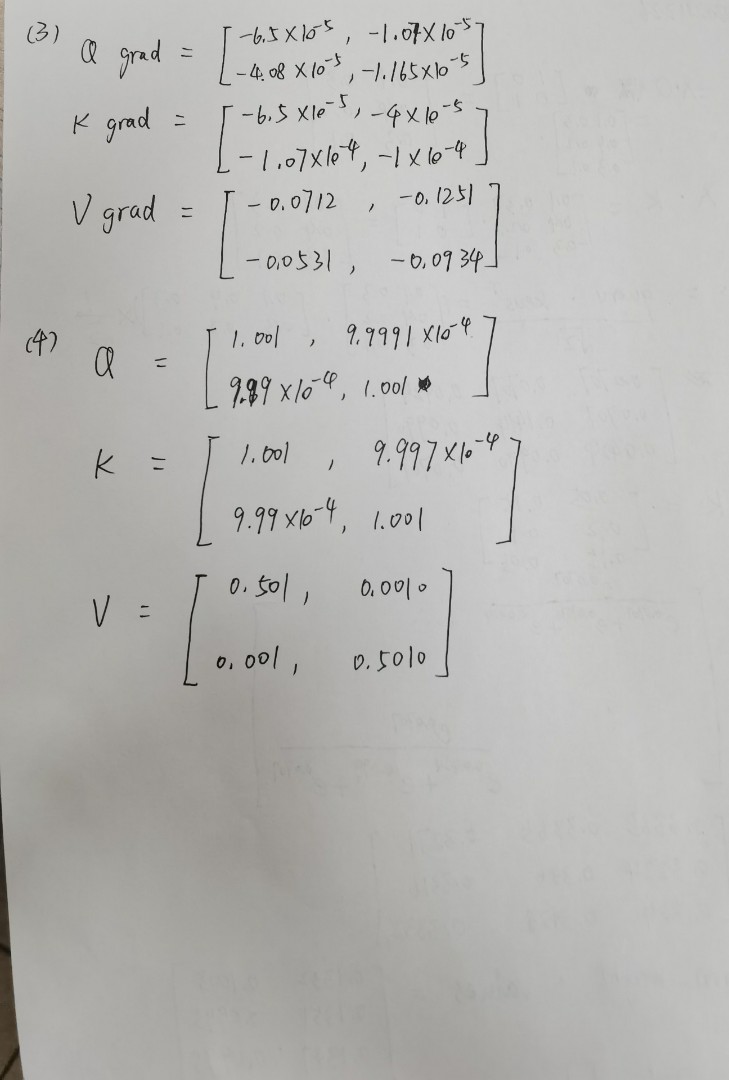 (3) Q grad = [ -6.5×10⁻⁵, -1.07×10⁻⁵
-4.08×10⁻⁵, -1.165×10⁻⁵ ]
K grad = [ -6.5×10⁻⁵, -4×10⁻⁵
-1.07×10⁻⁴, -1×10⁻⁴ ]
V grad = [ -0.0712, -0.1251
-0.0531, -0.0934 ]
(4) Q = [ 1.001, 9.9991×10⁻⁴
9.99×10⁻⁴, 1.001 ]
K = [ 1.001, 9.997×10⁻⁴
9.99×10⁻⁴, 1.001 ]
V = [ 0.501, 0.0010
0.001, 0.5010 ]